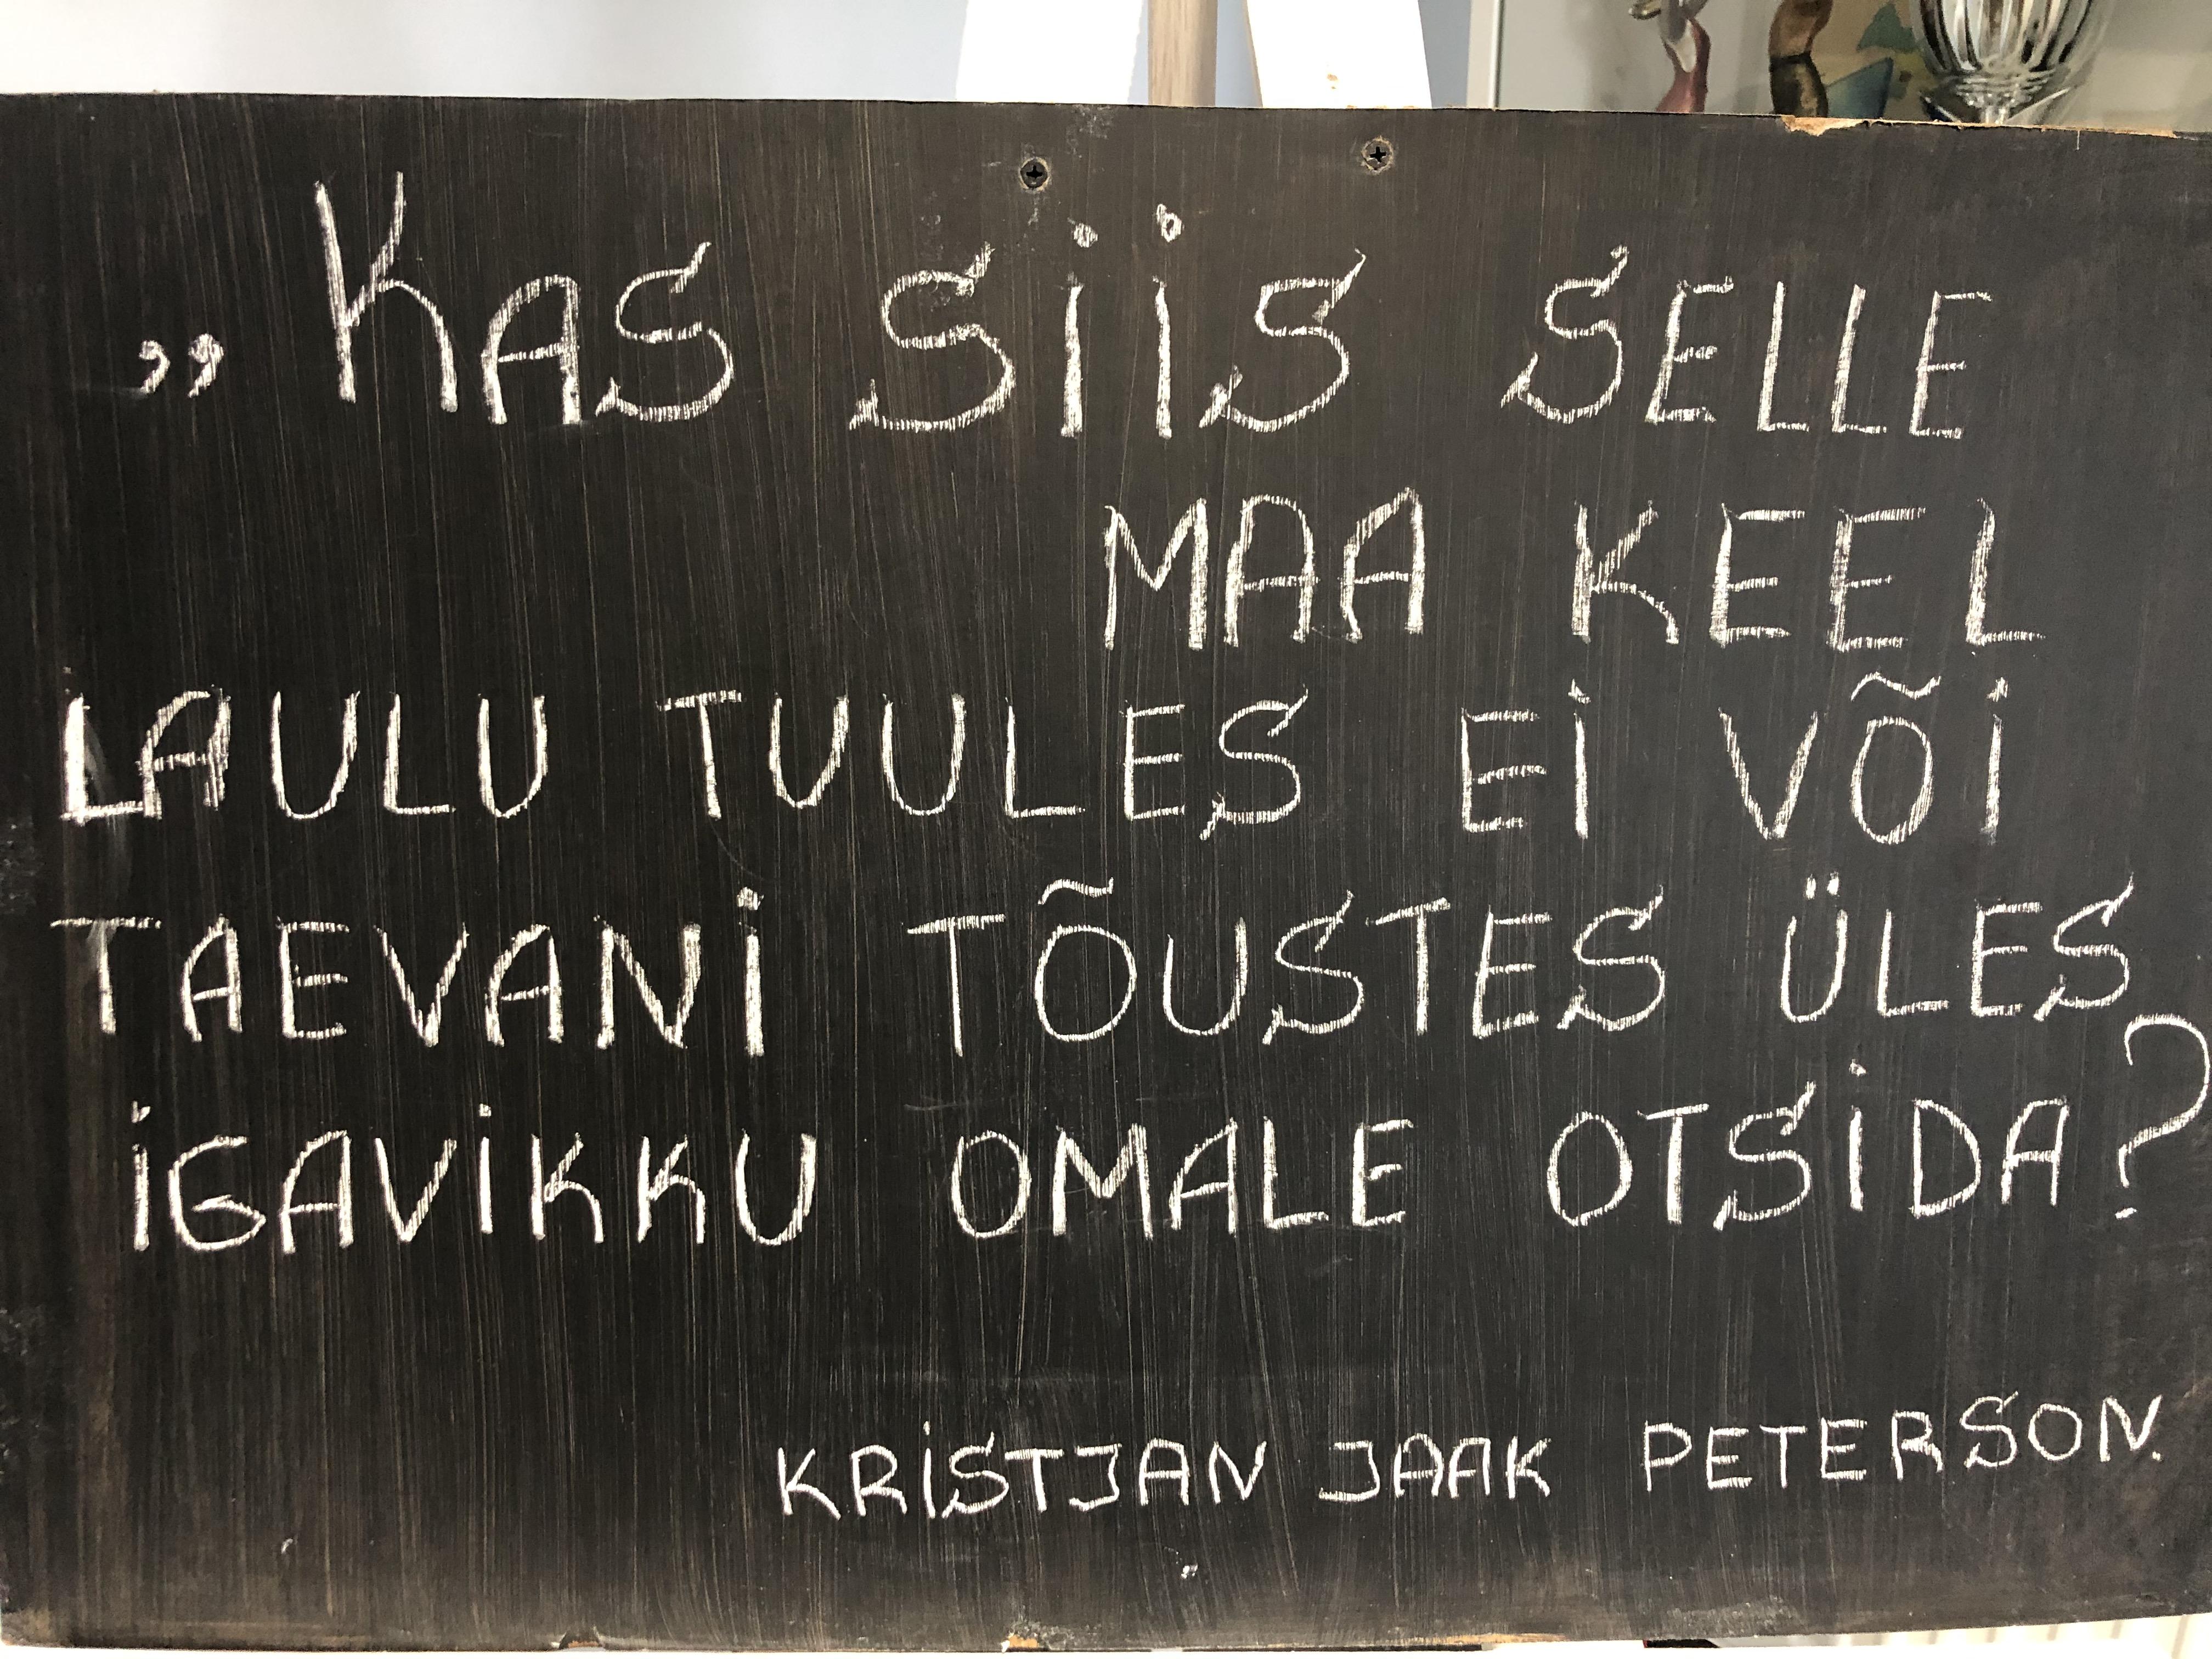 „KAS SIIS SELLE
MAA KEEL
LAULU TUULES EI VÕI
TAEVANI TÕUSTES ÜLES
IGAVIKKU OMALE OTSIDA?
KRISTJAN JAAK PETERSON.